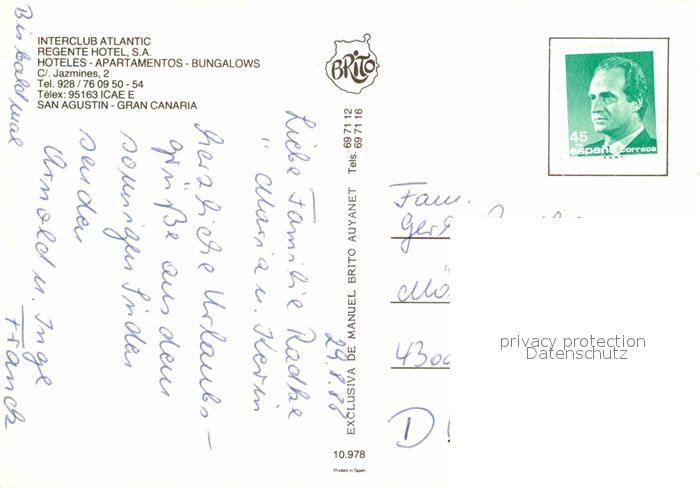 INTERCLUB ATLANTIC
REGENTE HOTEL, S.A.
HOTELES - APARTAMENTOS - BUNGALOWS
C/. Jazmines, 2
Tel. 928 / 76 09 50 - 54
Télex: 95163 ICAE E
SAN AGUSTIN - GRAN CANARIA
BRITO
EXCLUSIVA DE MANUEL BRITO AUYANET Tels. 69 71 12
69 71 16
10.978
Printed in Spain
45
españa correos
F.N.M.T.
29.8.88
Liebe Familie Radtke
" Maria u. Karin
Herzliche Urlaubs-
grüße aus dem
sonnigen Süden
senden
Arnold u. Inge
Franck
Bis bald mal
Fam.
Gert
Mö
4300
D
privacy protection
Datenschutz